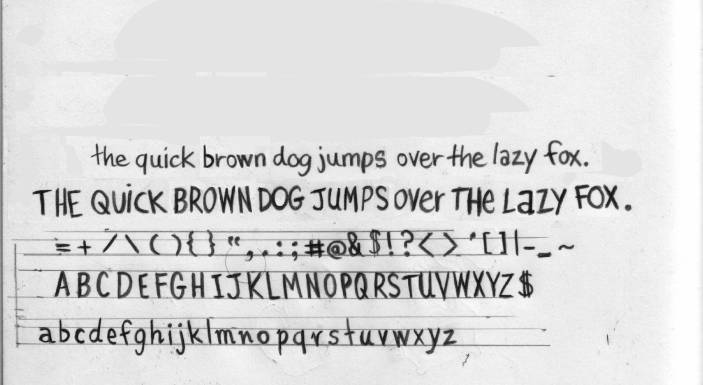 the quick brown dog jumps over the lazy fox.
THE QUiCK BROWN DOG JUMPS Over THe LaZY FOX.
= + / \ ( ) { } “ , . : ; # @ & $ ! ? < > ‘ [ ] | - _ ~
A B C D E F G H I J K L M N O P Q R S T U V W X Y Z $
a b c d e f g h i j k l m n o p q r s t u v w x y z